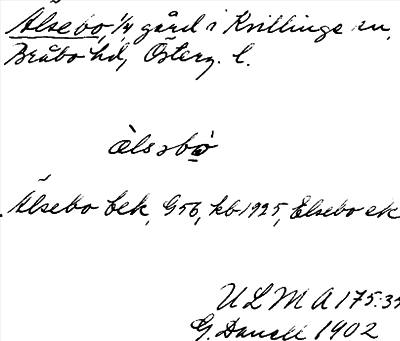 Älsebo, 1/4 gård i Kvillinge sn,
Bråbo hd, Österg. l.
älsəbo
Älsebo bek, G56, kb 1925, Elsebo ek
U L M A 175:35
G. Danell 1902